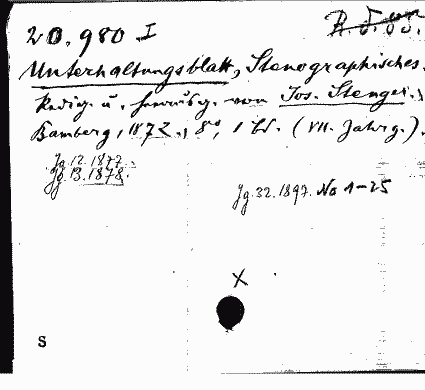 20.980 I
Unterhaltungsblatt, Stenographisches.
Redig. u. herausg. von Jos. Stenger.
Bamberg, 1872., 8°, 1 Bd. (VII. Jahrg.).
Jg. 12. 1877.
Jg. 13. 1878.
Jg. 32. 1897. No 1-25
X
S